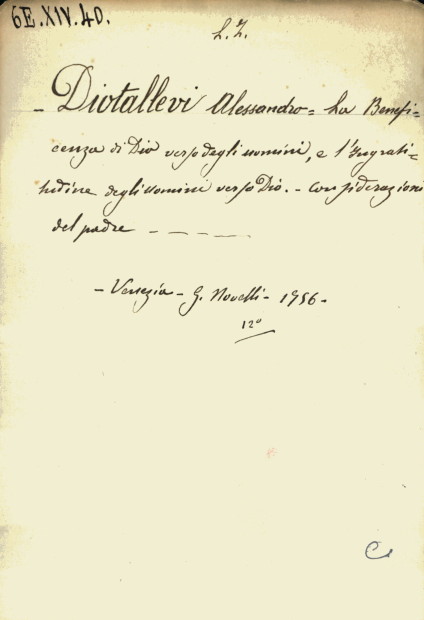 6E.XIV.40.
L.Z.
- Diotallevi Alessandro = La Benefi-
cenza di Dio verso degli uomini, e l'Ingrati-
tudine degli uomini verso Dio. - Considerazioni
del padre - - - - -
- Venezia - G. Novelli - 1756 -
12º
C